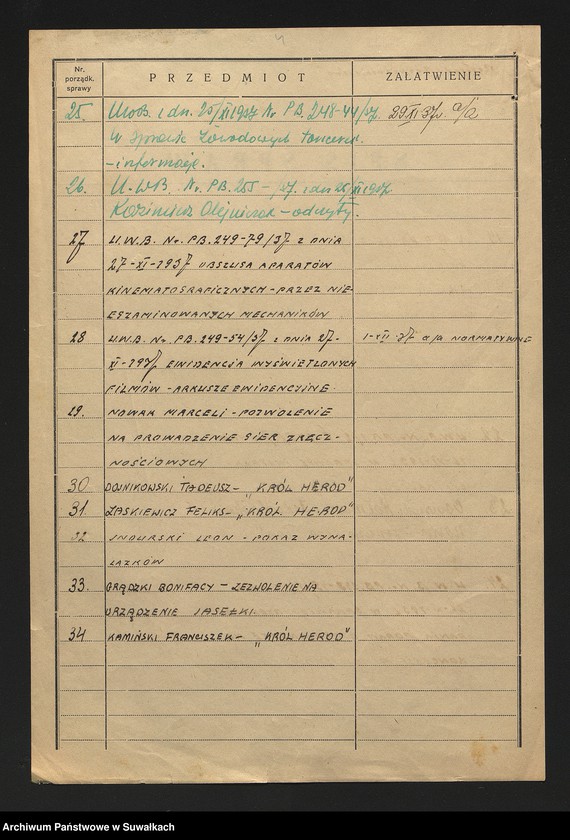 4
Nr. porządk. sprawy
PRZEDMIOT
ZAŁATWIENIE
25. UWB. z dn. 25/XI 1937 Nr PB. 248-44/37. 29 XI 37r. a/a
w sprawie zawodowych
- informacje.
26. U.W.B. Nr. PB. 255 - /37. z dn 26/XI 1937.
Kazimierz Olejniczak - odczyty.
27 U.W.B. Nr. PB. 249-79/37 z DNIA
27-XI-1937 OBSŁUGA APARATÓW
KINEMATOGRAFICZNYCH - PRZEZ NIE-
EGZAMINOWANYCH MECHANIKÓW
28 U.W.B. Nr. PB. 249-54/37 z DNIA 27- 1-XII-37 a/a NORMATYWNE
XI-1937 EWIDENCJA WYŚWIETLONYCH
FILMÓW - ARKUSZE EWIDENCYJNE.
29. NOWAK MARCELI - POZWOLENIE
NA PROWADZENIE GIER ZRĘCZ-
NOŚCIOWYCH
30 DOJNIKOWSKI TADEUSZ - „KRÓL HEROD"
31 ZASKIEWICZ FELIKS - „KRÓL HEROD"
32 INDURSKI LEON - POKAZ WYNA-
LAZKÓW
33. GRĄDZKI BONIFACY - ZEZWOLENIE NA
URZĄDZENIE JASEŁKI.
34 KAMIŃSKI FRANCISZEK - „KRÓL HEROD"
Archiwum Państwowe w Suwałkach